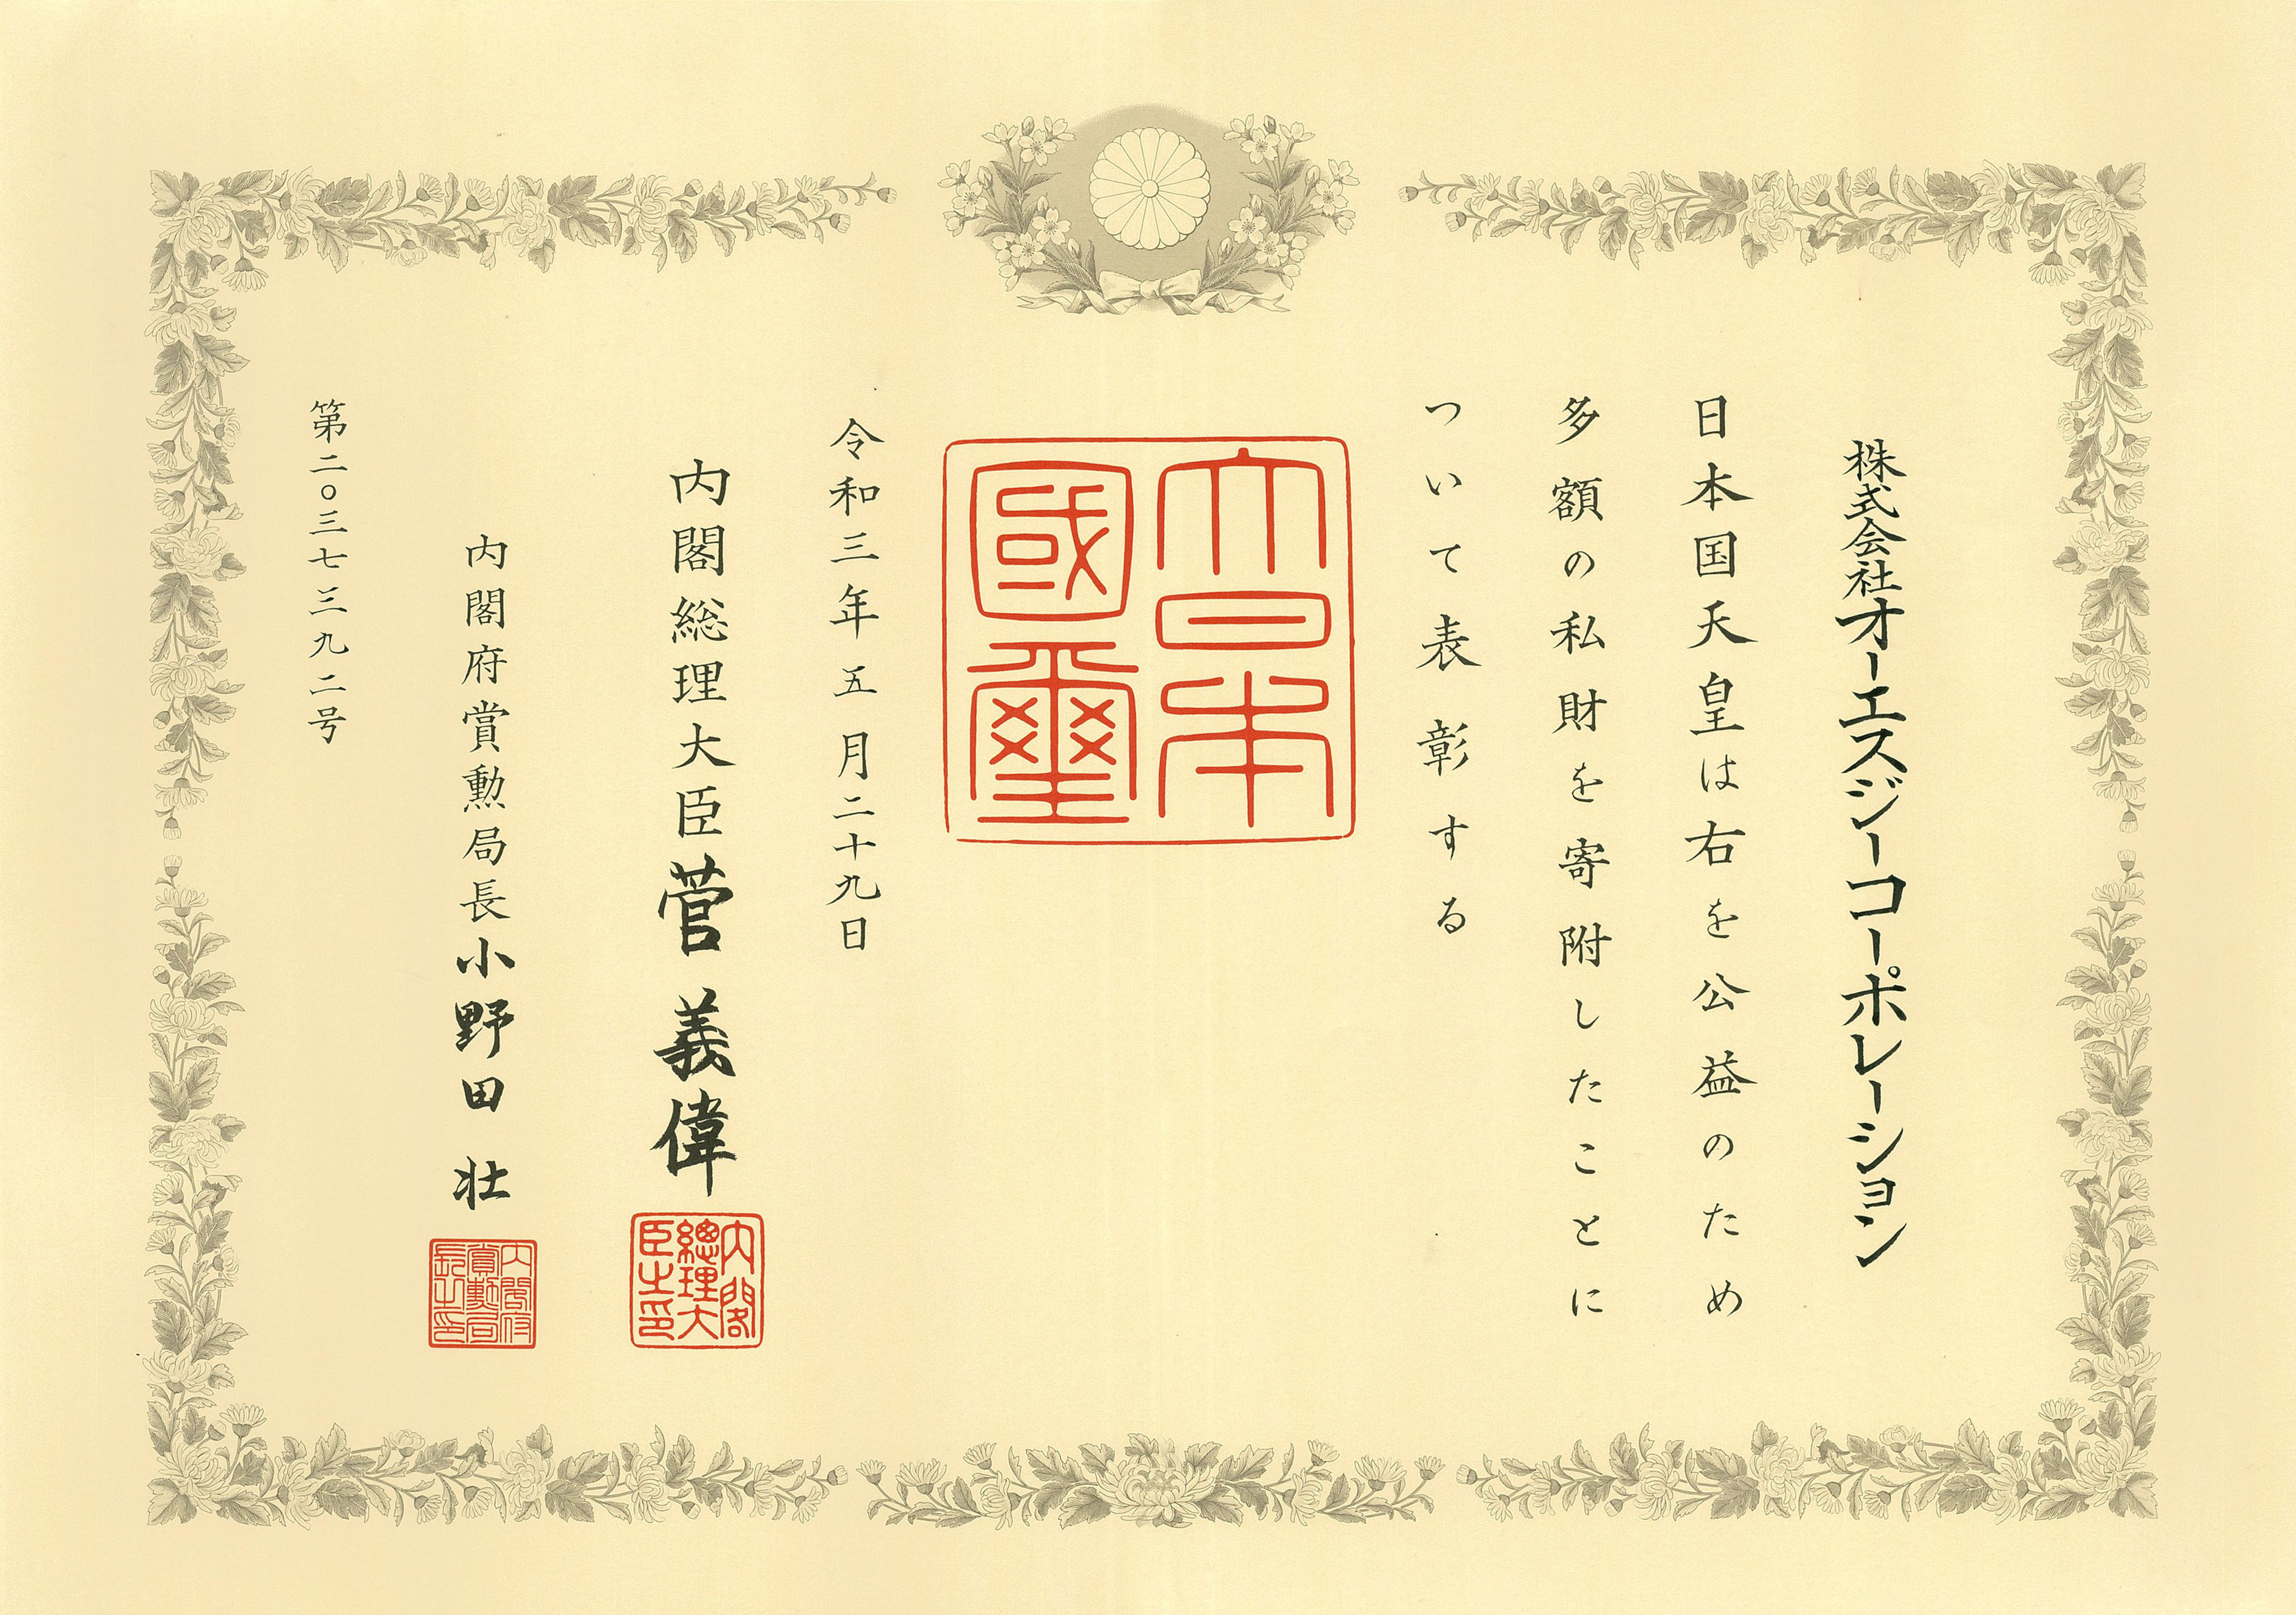 株式会社オーエスジーコーポレーション
日本国天皇は右を公益のため
多額の私財を寄附したことに
ついて表彰する
大日本
國璽
令和三年五月二十九日
内閣総理大臣菅義偉
内閣
總理大
臣之印
内閣府賞勲局長小野田壮
内閣府
賞勳局
長之印
第二〇三七三九二号